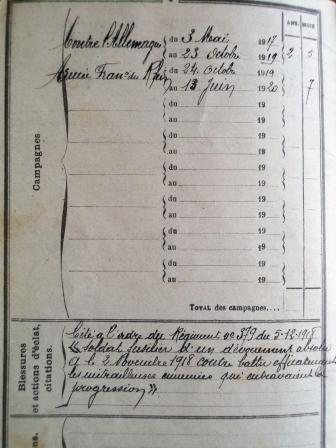 ANS. MOIS
Campagnes
Contre l'Allemagne { du 3 Mai 1917
au 23 Octobre 1919 } 2 5
Armée Franc. du Rhin { du 24 Octobre 1919
au 13 Juin 1920 } 7
{ du 19
au 19 }
{ du 19
au 19 }
{ du 19
au 19 }
{ du 19
au 19 }
{ du 19
au 19 }
{ du 19
au 19 }
TOTAL des campagnes....
Blessures
et actions d'éclat,
citations.
Cité à l'ordre du Régiment n° 379 du 5-12-1918
« Soldat fusilier d'un dévouement absolu
a le 2 Novembre 1918 contre battu efficacement
les mitrailleuses ennemies qui entravaient la
progression »